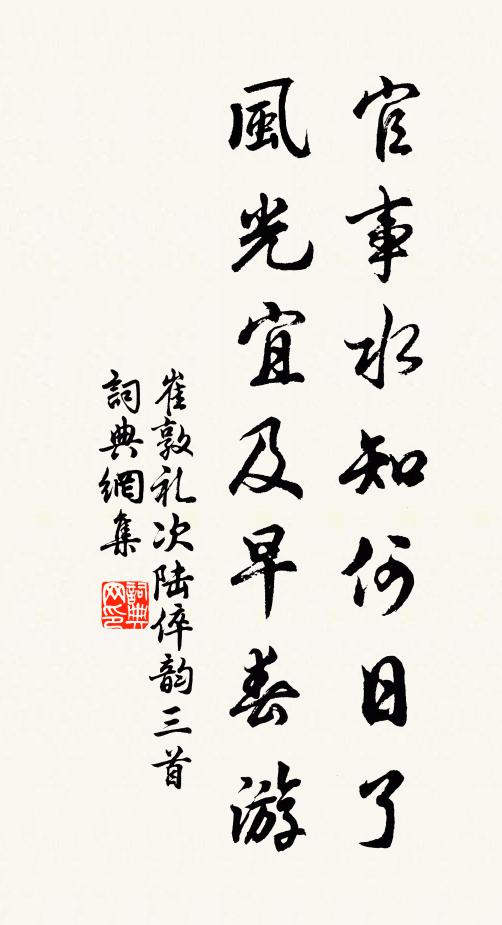 官事水知何日了
風光宜及早春游
崔敦礼次陆倅韵三首
詞典網集
詞典网印